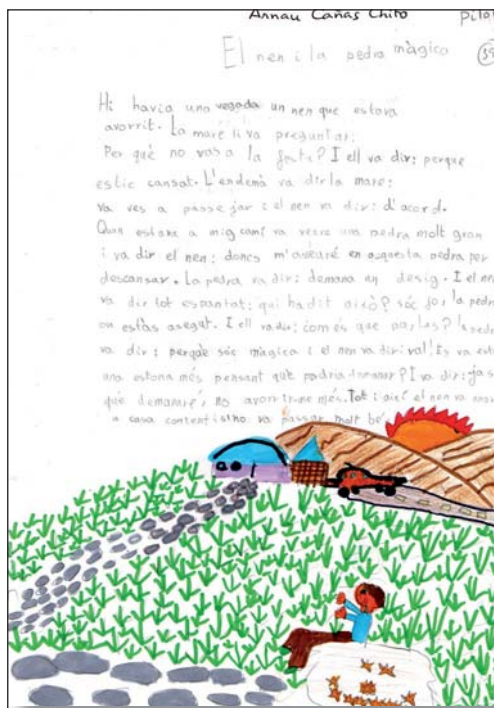 Arnau Cañas Chito Pilot
El nen i la pedra màgico
Hi havia una vegada un nen que estava
avorrit. La mare li va preguntar:
Per què no vas a la festa? I ell va dir: perque
estic cansat. L'endemà va dir la mare:
va ves a passejar i el nen va dir: d'acord.
Quan estava a mig camí va veure una pedra molt gran
i va dir el nen: doncs m'asearé en aquesta pedra per
descansar. La pedra va dir: demana un desig. I el nen
va dir tot espantat: qui ha dit això? sóc jo, la pedra
on estàs asegut. I ell va dir: com és que parles? la pedra
va dir: perquè sóc màgica i el nen va dir: val! Es va estar
una estona més pensant què podria demanar? I va dir: ja sé
què demanaré, no avorrir-me més. Tot i així el nen va anar
a casa content i s'ho va passar molt bé